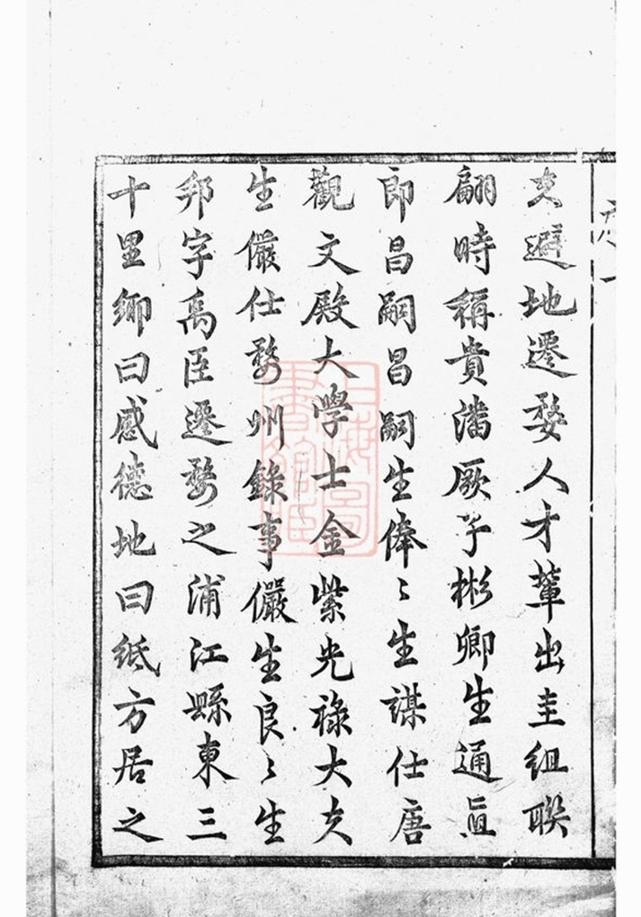 夫避地遷婺人才輩出圭組聯
翩時稱貴潘厥子彬卿生通直
郎昌嗣昌嗣生俸〻生謀仕唐
觀文殿大學士金紫光祿大夫
生儼仕婺州錄事儼生良〻生
邦字禹臣遷婺之浦江縣東三
十里鄉曰感德地曰紙方居之